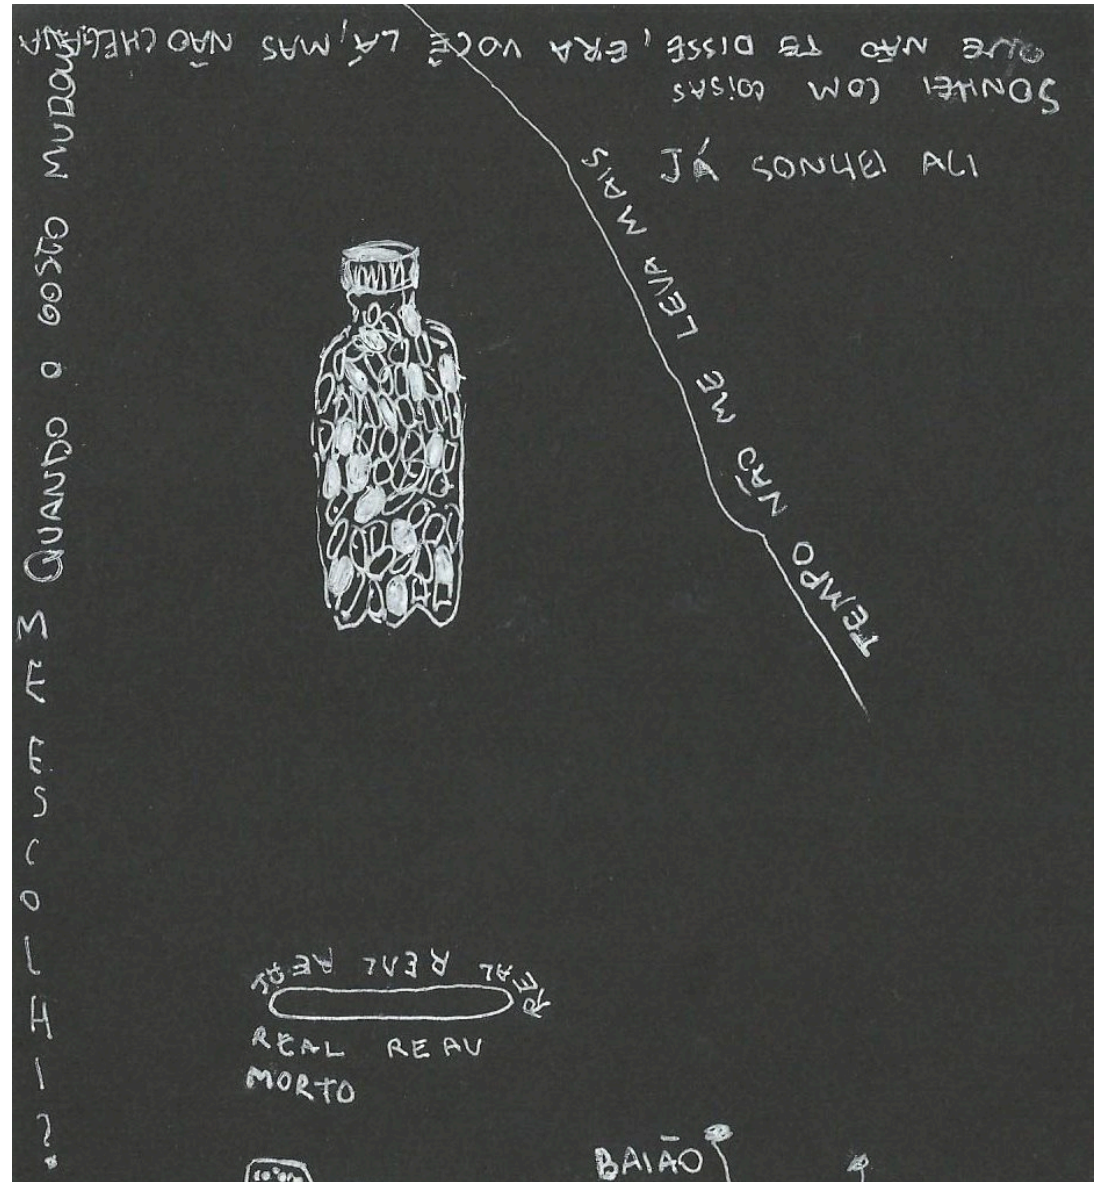 SONHEI COM COISAS
QUE NÃO TE DISSE, ERA VOCÊ LÁ, MAS NÃO CHEGAVA
JÁ SONHEI ALI
TEMPO NÃO ME LEVA MAIS
QUANDO O GOSTO MUDOU
ME ESCOLHI?
REAL REAL
REAL REAV
MORTO
BAIÃO